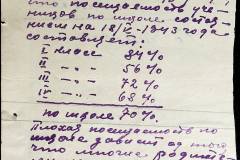 что посещаемость уче-
ников по школе состав-
на 18/V - 1943 года
составляет:
I класс 84%
II -"- 56%
III -"- 72%
IV -"- 68%
по школе 70%.
Плохая посещаемость по
школе зависит от того
что многие родите-